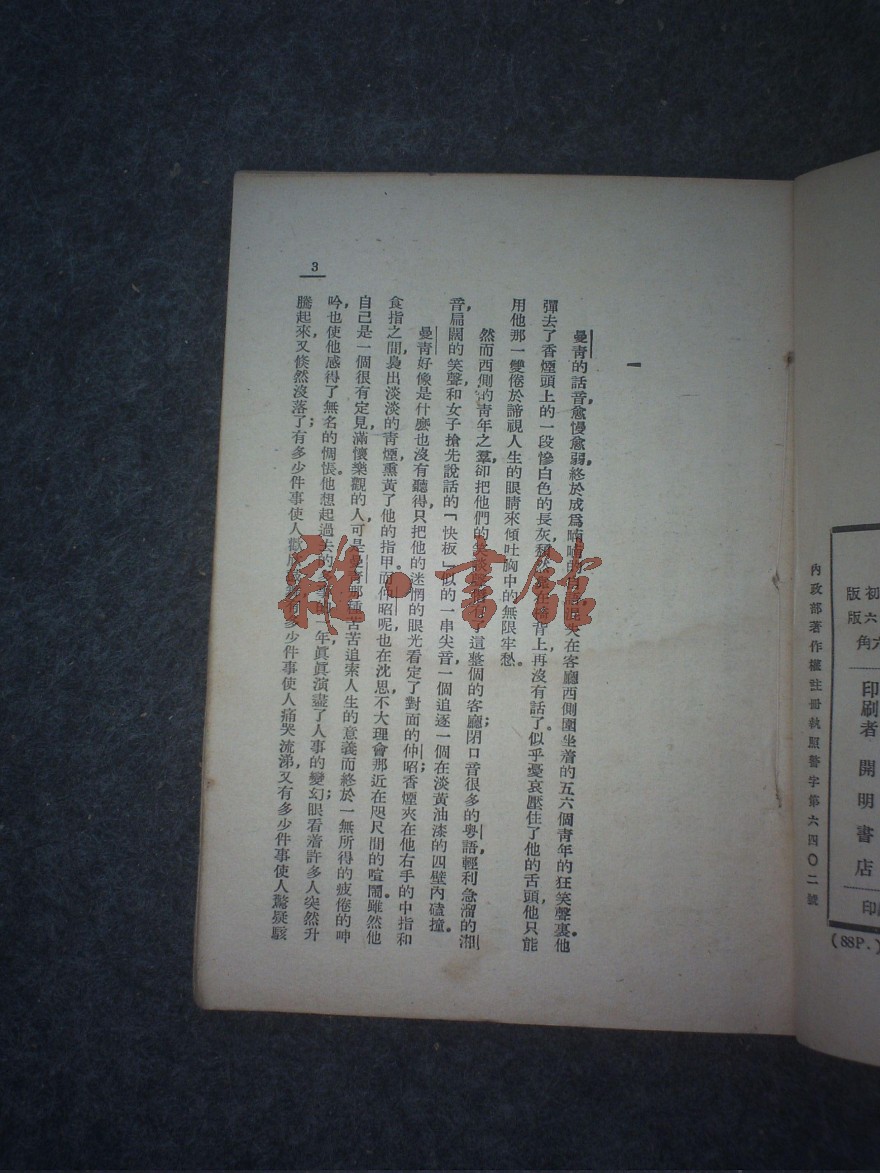 一
曼青的話音愈慢愈弱，終於成爲喃喃的自語消失在客廳西側圍坐着的五六個青年的狂笑聲裏。他
彈去了香煙頭上的一段慘白色的長灰，頹然靠在椅背上再沒有話了。似乎憂哀壓住了他的舌頭，他只能
用他那一雙倦於諦視人生的眼睛來傾吐胸中的無限牢愁。
然而西側的青年之羣，卻把他們的笑談了這整個的客廳；閉口音很多的粵語，輕利急溜的湘
音，扁闊的笑聲和女子搶先說話的「快板」似的一串尖音，一個追逐一個在淡黃油漆的四壁內磕撞。
曼青好像是什麽也沒有聽得，只把他的迷惘的眼光看定了對面的仲昭；香煙夾在他右手的中指和
食指之間，裊出淡淡的青煙，熏黃了他的指甲。而仲昭呢，也在沈思，不大理會那近在咫尺間的喧鬧。雖然他
自己是一個很有定見，滿懷樂觀的人，可是曼青那種苦苦追索人生的意義而終於一無所得的疲倦的呻
吟，也使他感得了無名的惆悵。他想起過去的一年，眞眞演盡了人事的變幻；眼看着許多人突然升
騰起來，又倏然沒落了；有多少件事使人歡欣鼓舞，有多少件事使人痛哭流涕，又有多少件事使人驚疑駭
3
雅·書館
初版
六版
六角
印刷者 開明書店
印
內政部著作權註冊執照警字第六四〇二號
(88P.)